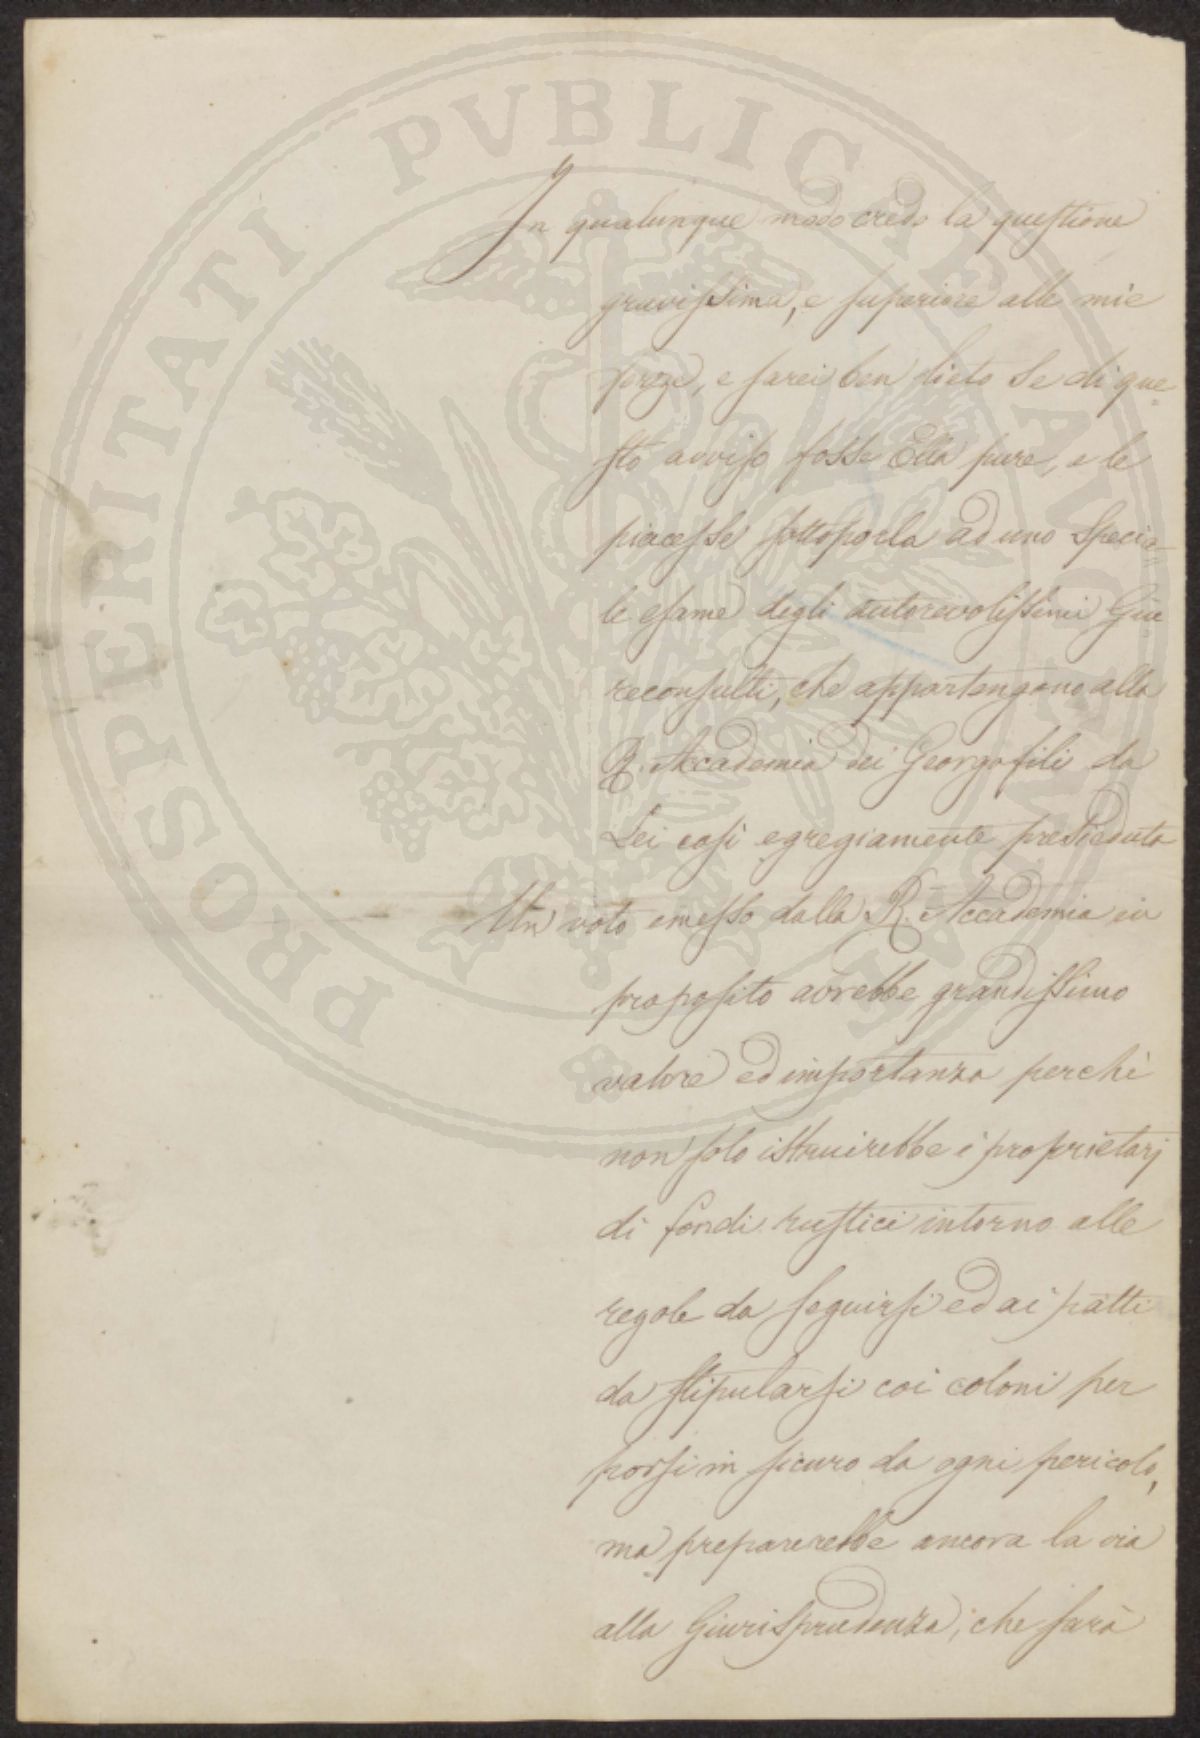 PROSPERITATI PVBLICAE AVGENDAE
In qualunque modo credo la questione
gravissima, e superiore alle mie
forze, e sarei ben lieto se di que-
sto avviso fosse Ella pure, e le
piacesse sottoporla ad uno specia-
le esame degli autorevolissimi Giu-
reconsulti, che appartengono alla
R. Accademia dei Georgofili da
Lei così egregiamente presieduta
Un voto emesso dalla R. Accademia in
proposito avrebbe grandissimo
valore ed importanza perchè
non solo istruirebbe i proprietarj
di fondi rustici intorno alle
regole da seguirsi ed ai patti
da stipularsi coi coloni per
porsi in sicuro da ogni pericolo,
ma preparerebbe ancora la via
alla Giurisprudenza, che sarà